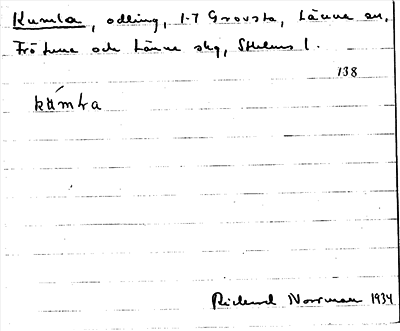 Kumla, odling, 1-7 Grovsta, Länna sn,
Frötuna och Länna skg, Sthlms l.
138
kúmla
Richard Norrman 1934